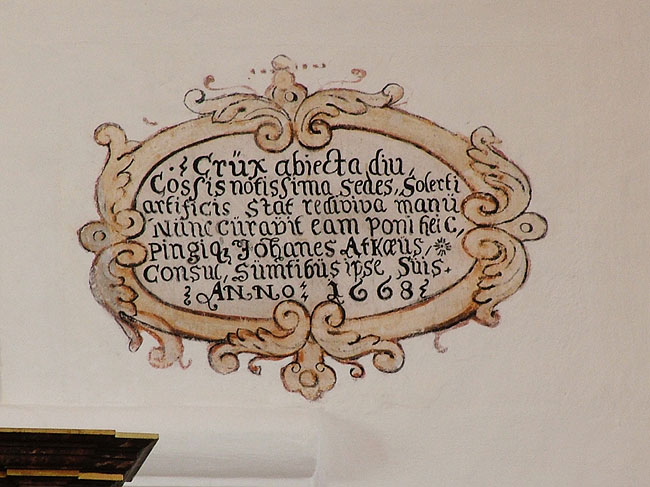 Crüx abiecta diu,
Cossis notissima sedes, Solerti
artificis stat rediviva manu
Nunc cüravit eam poni heic,
Pingiq; Johanes Atkœus,
Consul, Sümtibüs ipse Süis.
ANNO 1668